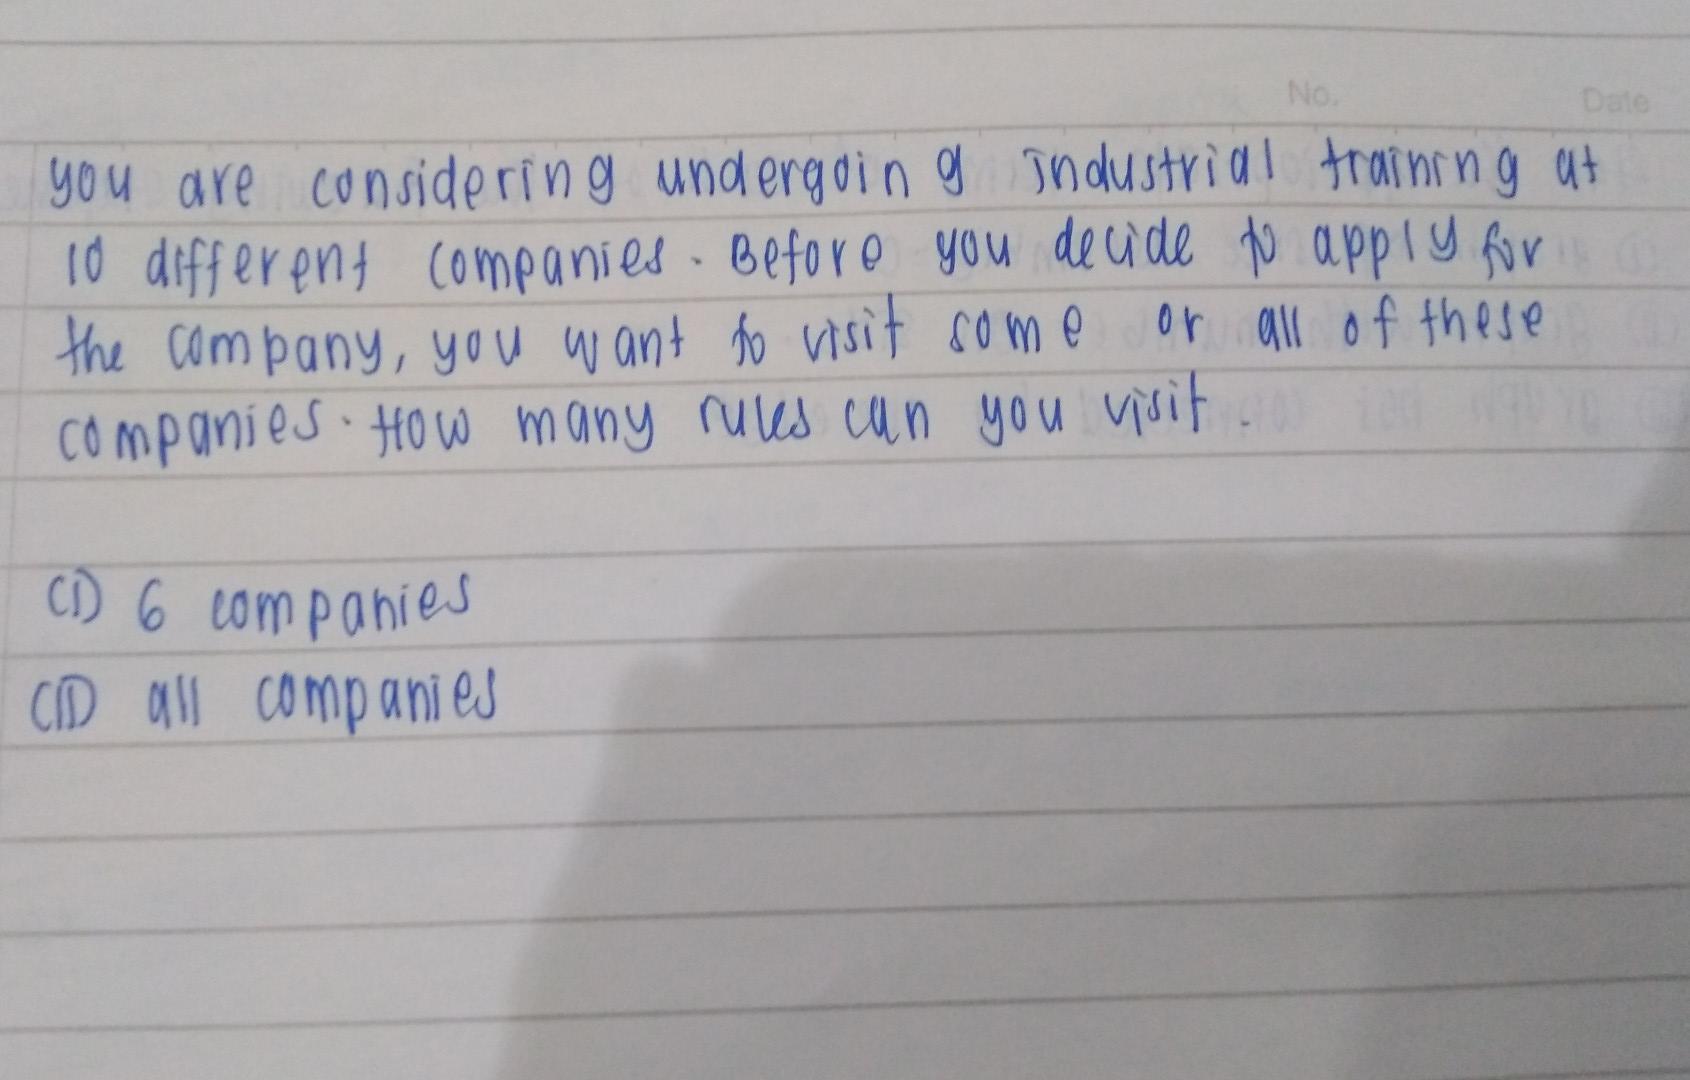 No. Date
you are considering undergoin g industrial training at
10 different companies. Before you decide to apply for
the company, you want to visit some or all of these
companies. How many rules can you visit.
(i) 6 companies
(ii) all companies